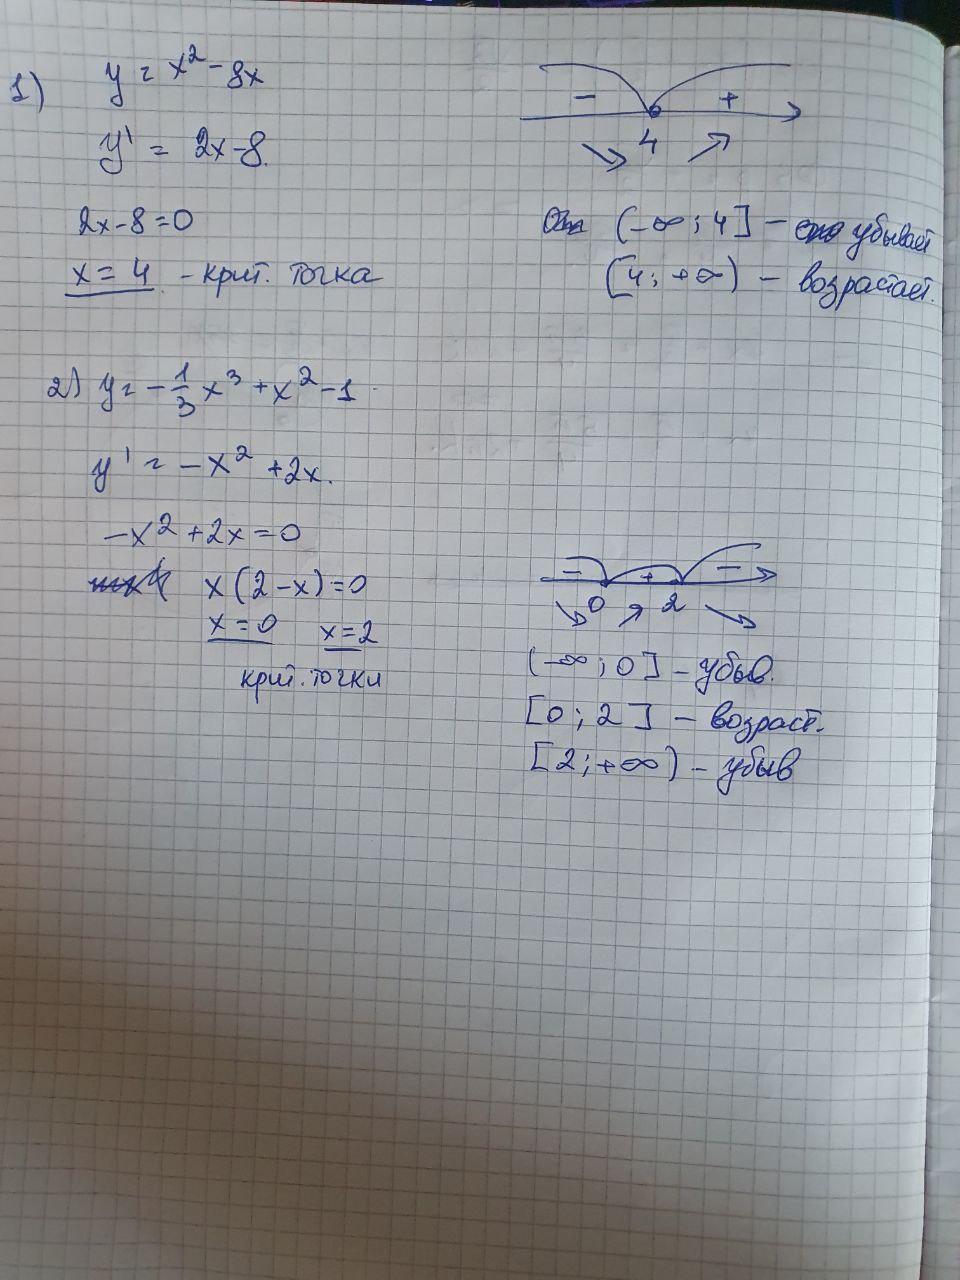 1) y = x² - 8x
y' = 2x-8.
2x-8=0
x = 4 - крит. точка
- +
4
(-∞; 4] - убывает
[4; +∞) - возрастает.
2) y = -1/3 x³ + x² - 1
y' = -x² + 2x.
-x² + 2x = 0
x(2-x)=0
x=0 x=2
крит. точки
- + -
0 2
(-∞; 0] - убыв.
[0; 2] - возраст.
[2; +∞) - убыв